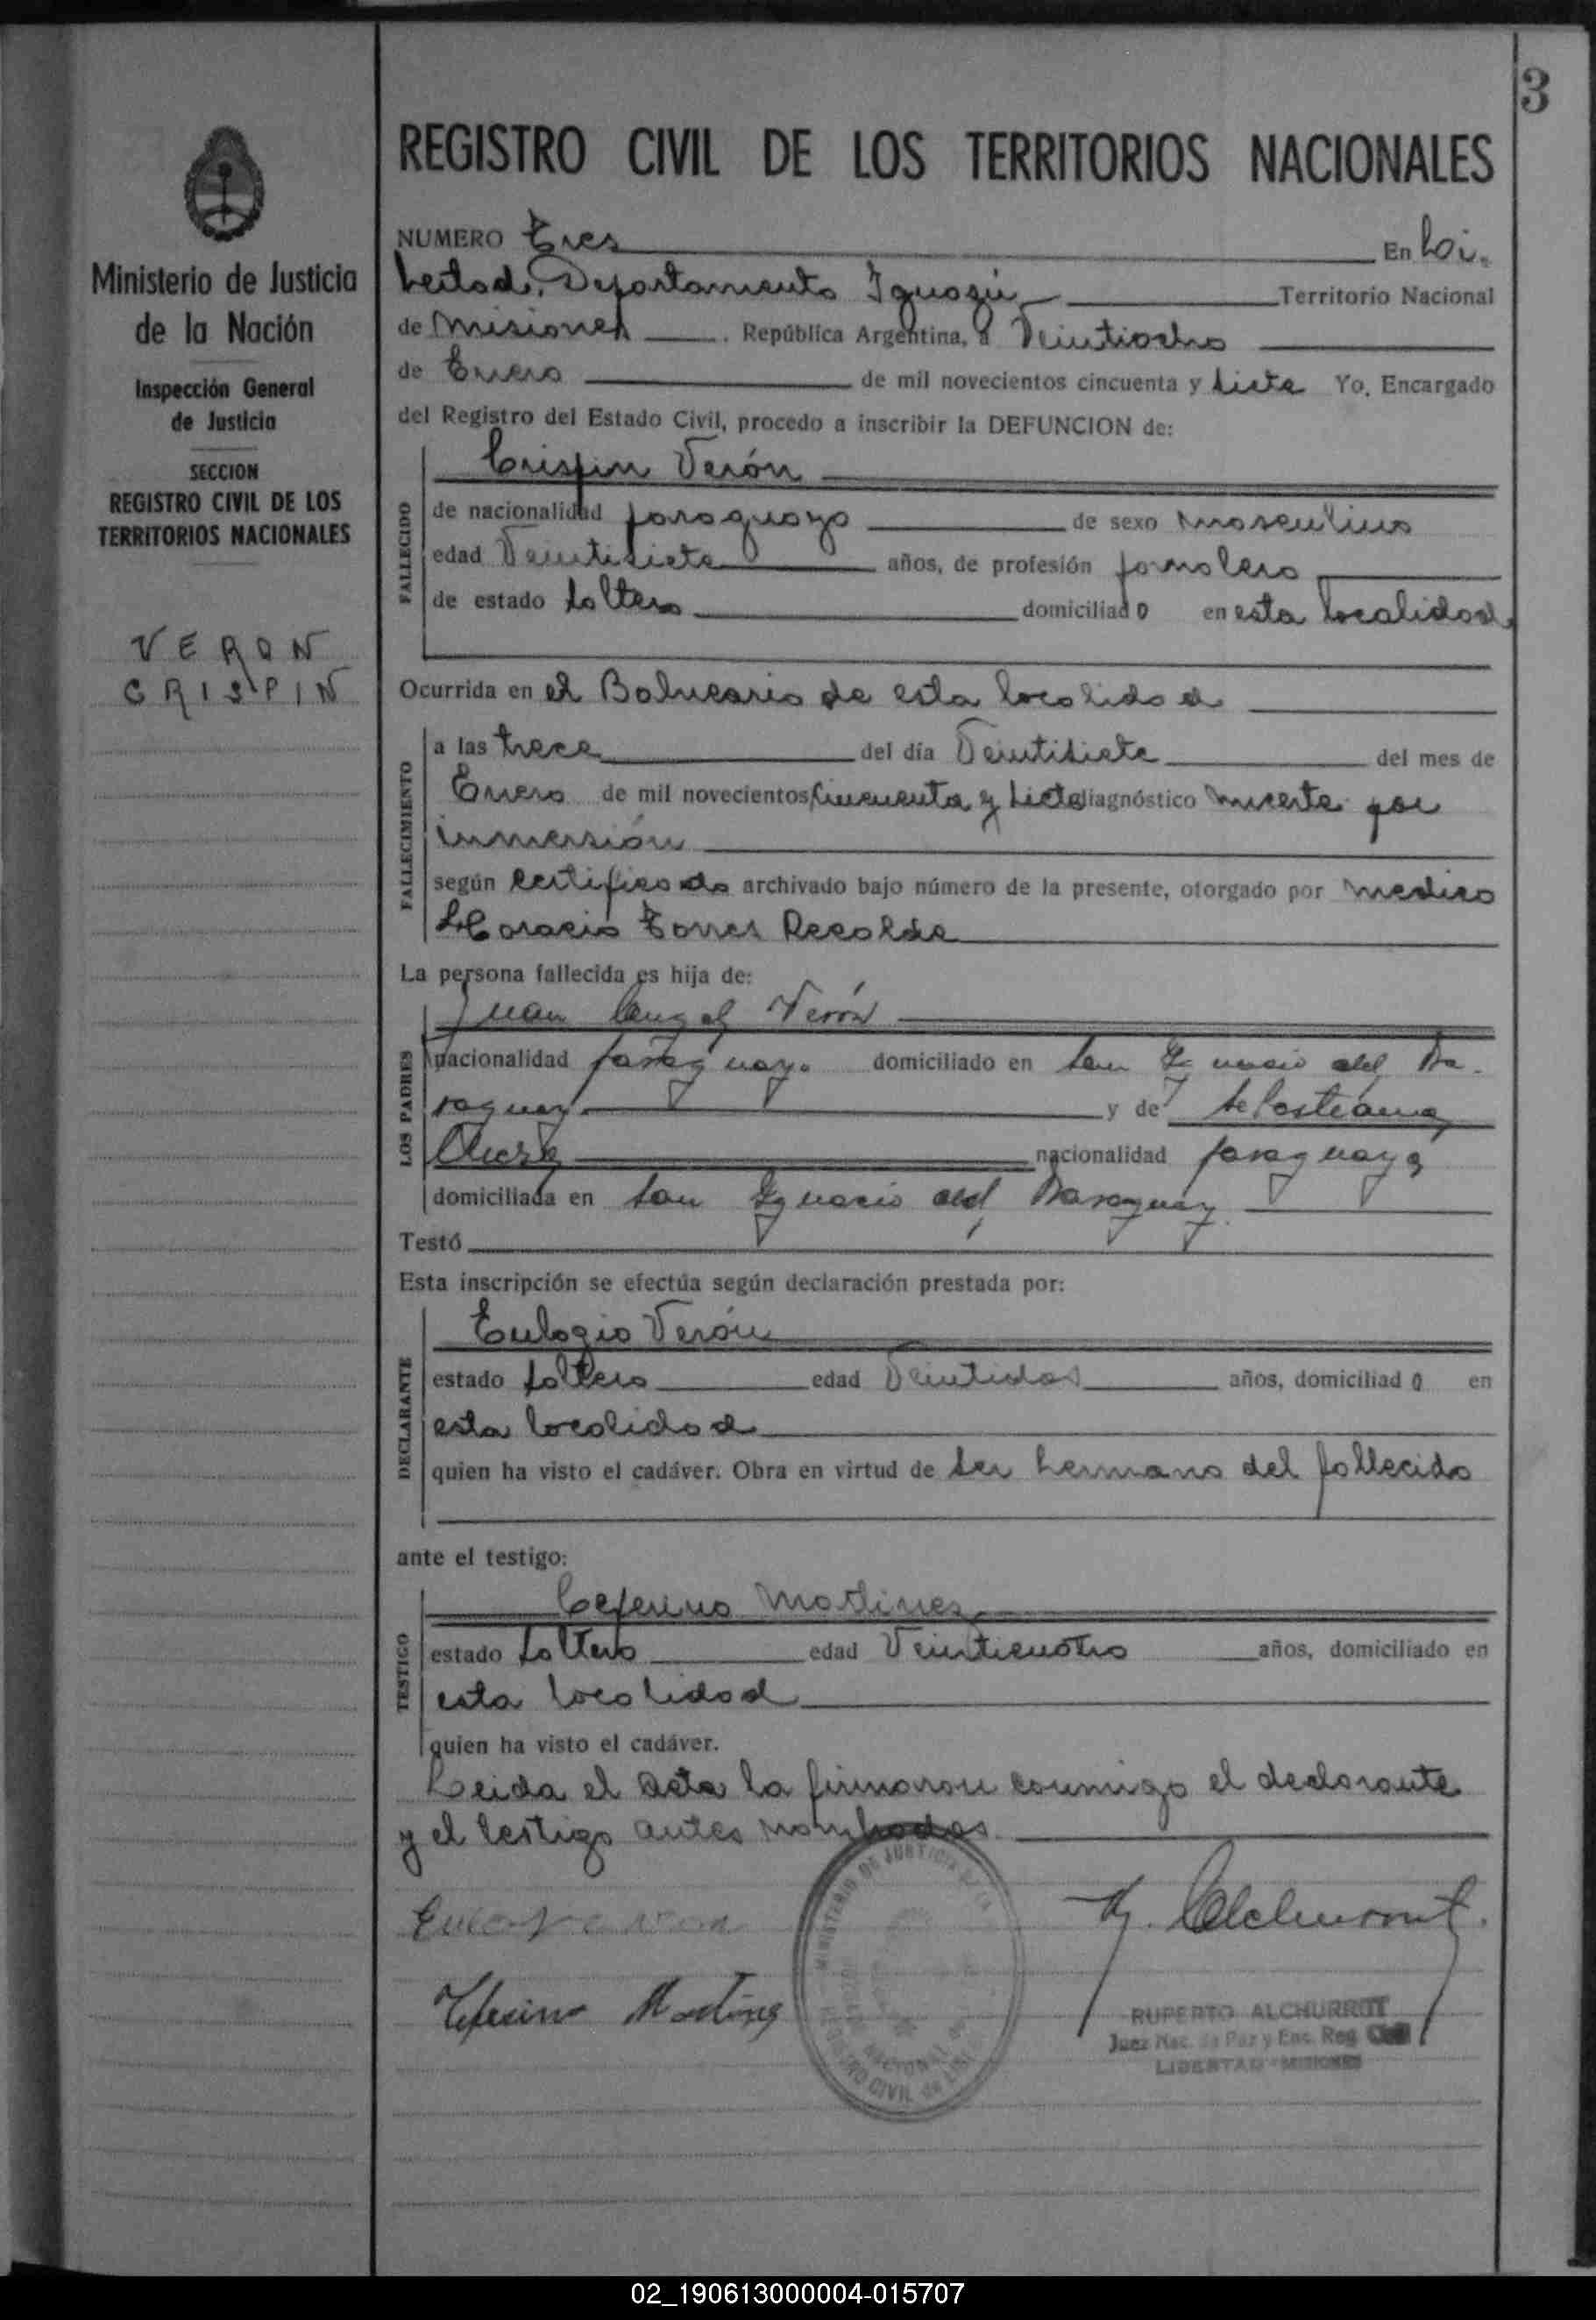 3
REGISTRO CIVIL DE LOS TERRITORIOS NACIONALES
Ministerio de Justicia
de la Nación
Inspección General
de Justicia
SECCION
REGISTRO CIVIL DE LOS
TERRITORIOS NACIONALES
VERON
CRISPIN
NUMERO Tres En Li-
bertad, Departamento Iguazú Territorio Nacional
de Misiones . República Argentina, a Veintiocho
de Enero de mil novecientos cincuenta y siete Yo, Encargado
del Registro del Estado Civil, procedo a inscribir la DEFUNCION de:
Crispin Verón
FALLECIDO
de nacionalidad paraguayo de sexo masculino
edad Veintisiete años, de profesión jornalero
de estado soltero domiciliado en esta localidad
Ocurrida en el Balneario de esta localidad
FALLECIMIENTO
a las trece del día Veintisiete del mes de
Enero de mil novecientos cincuenta y siete diagnóstico muerte por
inmersión
según certificado archivado bajo número de la presente, otorgado por medico
Horacio Torres Recalde
La persona fallecida es hija de:
LOS PADRES
Juan Angel Verón
nacionalidad paraguayo domiciliado en San Ignacio del Pa-
raguay y de Sebastiana
nacionalidad paraguaya
domiciliada en San Ignacio del Paraguay
Testó
Esta inscripción se efectúa según declaración prestada por:
DECLARANTE
Eulogio Verón
estado soltero edad Veintidos años, domiciliado en
esta localidad
quien ha visto el cadáver. Obra en virtud de ser hermano del fallecido
ante el testigo:
TESTIGO
Ceferino Martinez
estado soltero edad Veinticuatro años, domiciliado en
esta localidad
quien ha visto el cadáver.
Leida el Acta la firmaron conmigo el declarante
y el testigo antes nombrados
Ceferino Martinez
MINISTERIO DE JUSTICIA
REGISTRO CIVIL
RUPERTO ALCHURRUT
Juez Nac. de Paz y Enc. Reg. Civil
LIBERTAD - MISIONES
02_190613000004-015707